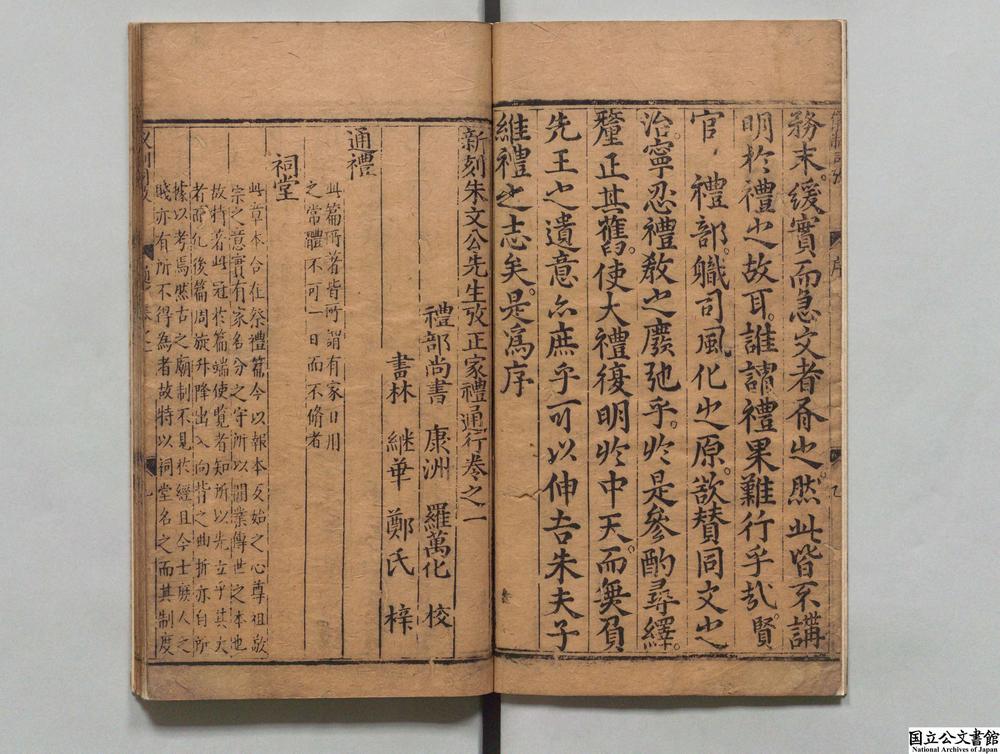 務末。緩實而急文者吝也。然此皆不講
明於禮之故耳。誰謂禮果難行乎哉。賢
官。禮部。職司風化之原。欲賛同文之
治。寧忍禮教之廢弛乎。於是參酌尋繹。
釐正其舊。使大禮復明於中天。而無負
先王之遺意亦庶乎可以伸吾朱夫子
維禮之志矣。是為序
新刻朱文公先生攷正家禮通行卷之一
禮部尚書 康洲 羅萬化 校
書林 継華 鄭氏 梓
通禮
此篇所著皆所謂有家日用
之常體不可一日而不脩者
祠堂
此章本合在祭禮篇今以報本反始之心尊祖敬
宗之意實有家名分之守所以開業傳世之本也
故特著此冠於篇端使覧者知所以先立乎其大
者而凡後篇周旋升降出入向背之曲折亦自所
據以考焉然古之廟制不見於經且今士庶人之
賤亦有所不得為者故特以祠堂名之而其制度
国立公文書館
National Archives of Japan